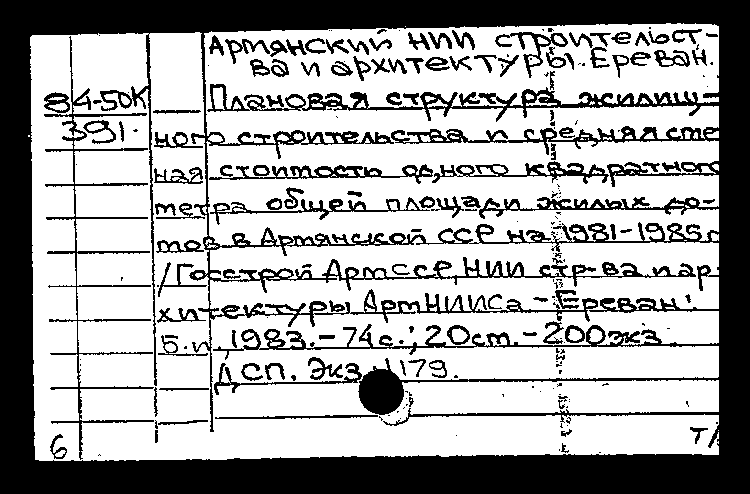 Армянский НИИ строительст-
ва и архитектуры. Ереван.
84-50К Плановая структура жилищ-
391. ного строительства и средняя сме
ная стоимость одного квадратного
метра общей площади жилых до-
мов в Армянской ССР на 1981-1985г
/Госстрой АрмССР, НИИ стр-ва и ар-
хитектуры АрмНИИСа - Ереван:
Б.и., 1983. - 74с.; 20см. - 200экз.
ДСП. Экз. N179.
6 Т/